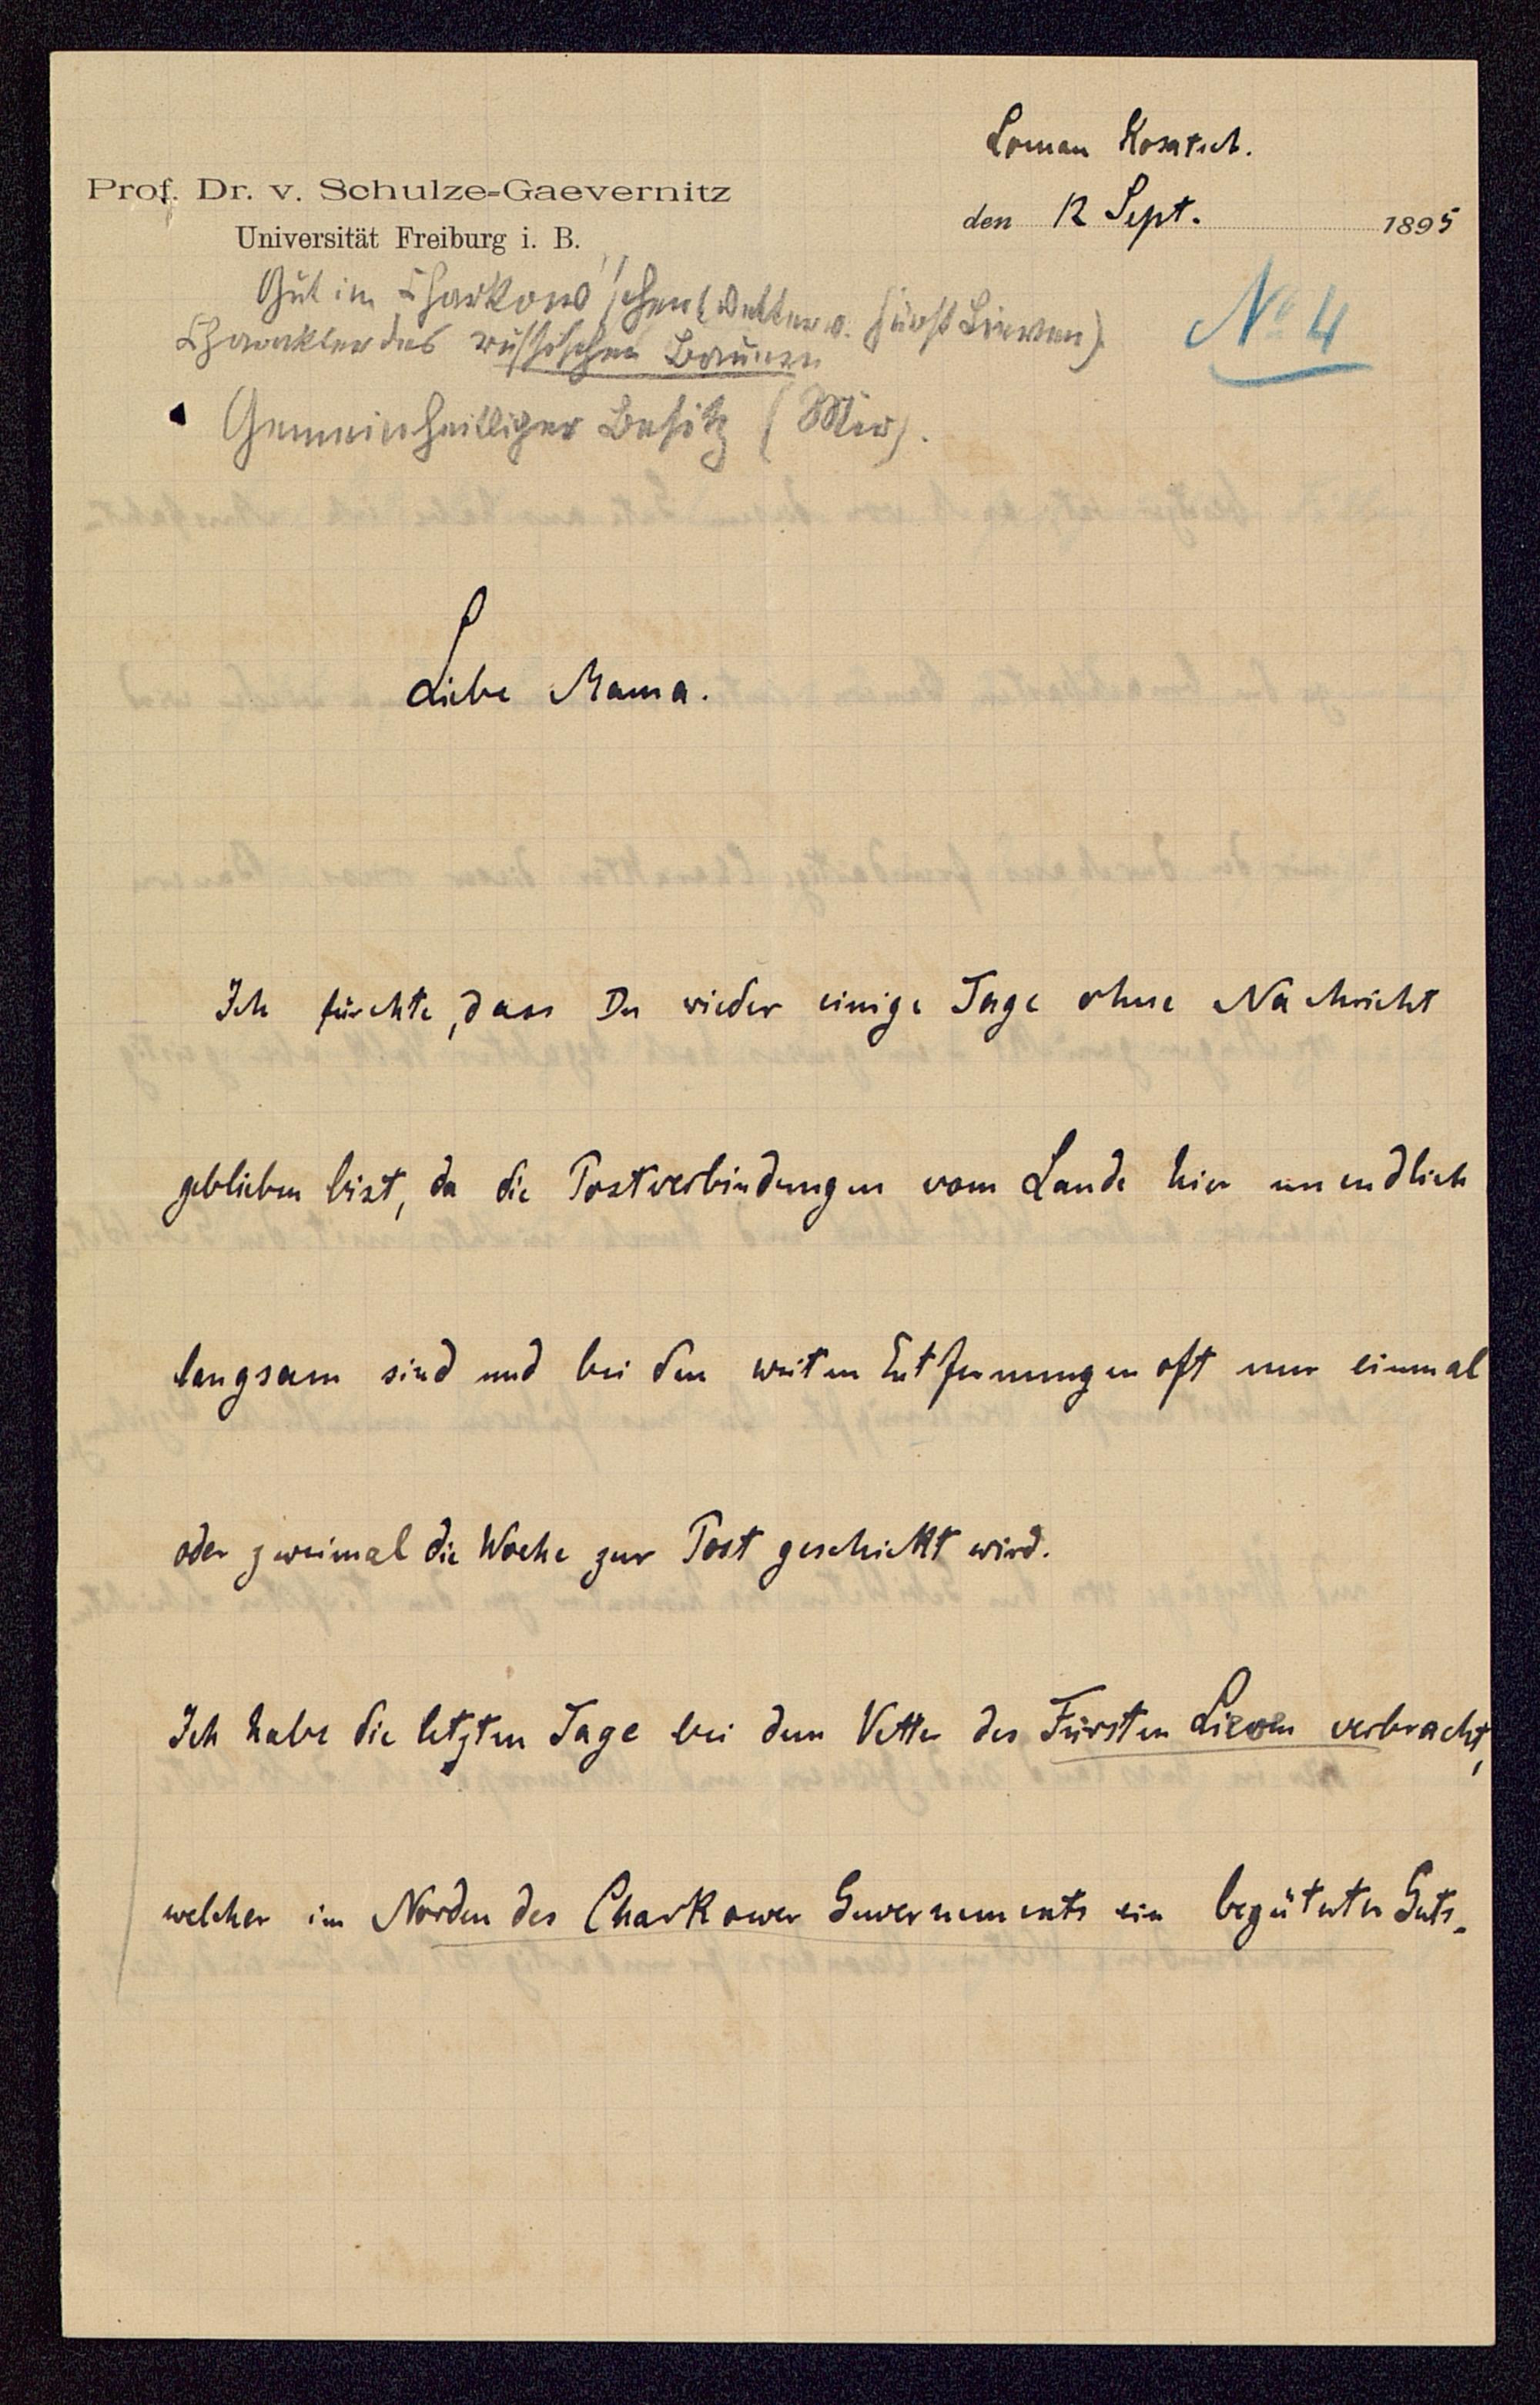 Loman Kosatsch.
Prof. Dr. v. Schulze-Gaevernitz
den 12 Sept. 1895
Universität Freiburg i. B.
Gut im Charkow'schen (Vetter v. Fürst Liewen)
No 4
Charakter des russischen Bauern
Gemeinheitliger Besitz (Mir).
Liebe Mama.
Ich fürchte, dass Du wieder einige Tage ohne Nachricht
geblieben bist, da die Postverbindungen vom Lande hier unendlich
langsam sind und bei den weiten Entfernungen oft nur einmal
oder zweimal die Woche zur Post geschickt wird.
Ich habe die letzten Tage bei dem Vetter des Fürsten Lieven verbracht,
welcher im Norden des Charkower Guvernements ein begüterter Guts-